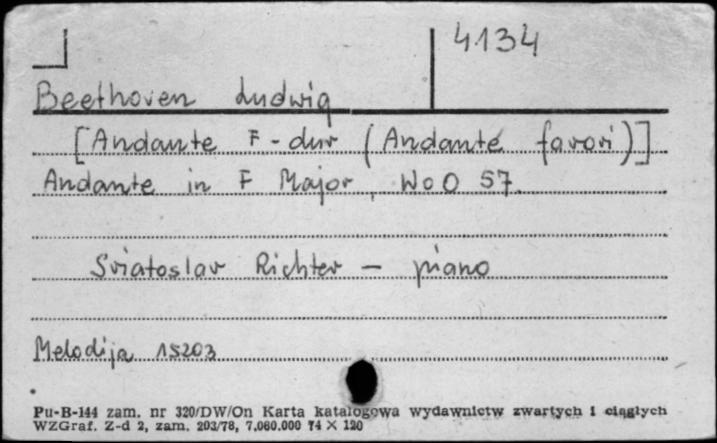 4134
Beethoven Ludwig
[Andante F-dur (Andante favori)]
Andante in F Major, WoO 57.
Sviatoslav Richter – piano
Melodija 15203
Pu-B-144 zam. nr 320/DW/On Karta katalogowa wydawnictw zwartych i ciągłych
WZGraf. Z-d 2, zam. 203/78, 7.060.000 74 × 120